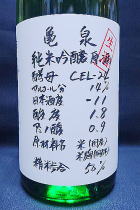 亀泉
生
純米吟醸原酒
酵母 CEL-24
アルコール分 14%
日本酒度 -11
酸度 1.8
アミノ酸 0.9
原材料名 米(国産)
米麹(国産米)
精米歩合 50%